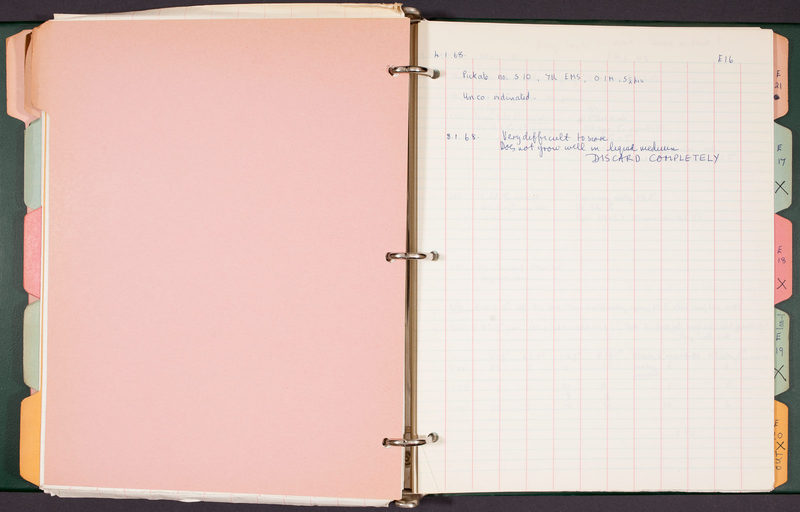 4.1.68. E16
Pickab no. S10, 7d EMS, 0.1M,
Unco-ordinated.
8.1.68. Very difficult to score.
Does not grow well in liquid medium
DISCARD COMPLETELY
E
21
E
17
X
E
18
X
E
19
X
E
X